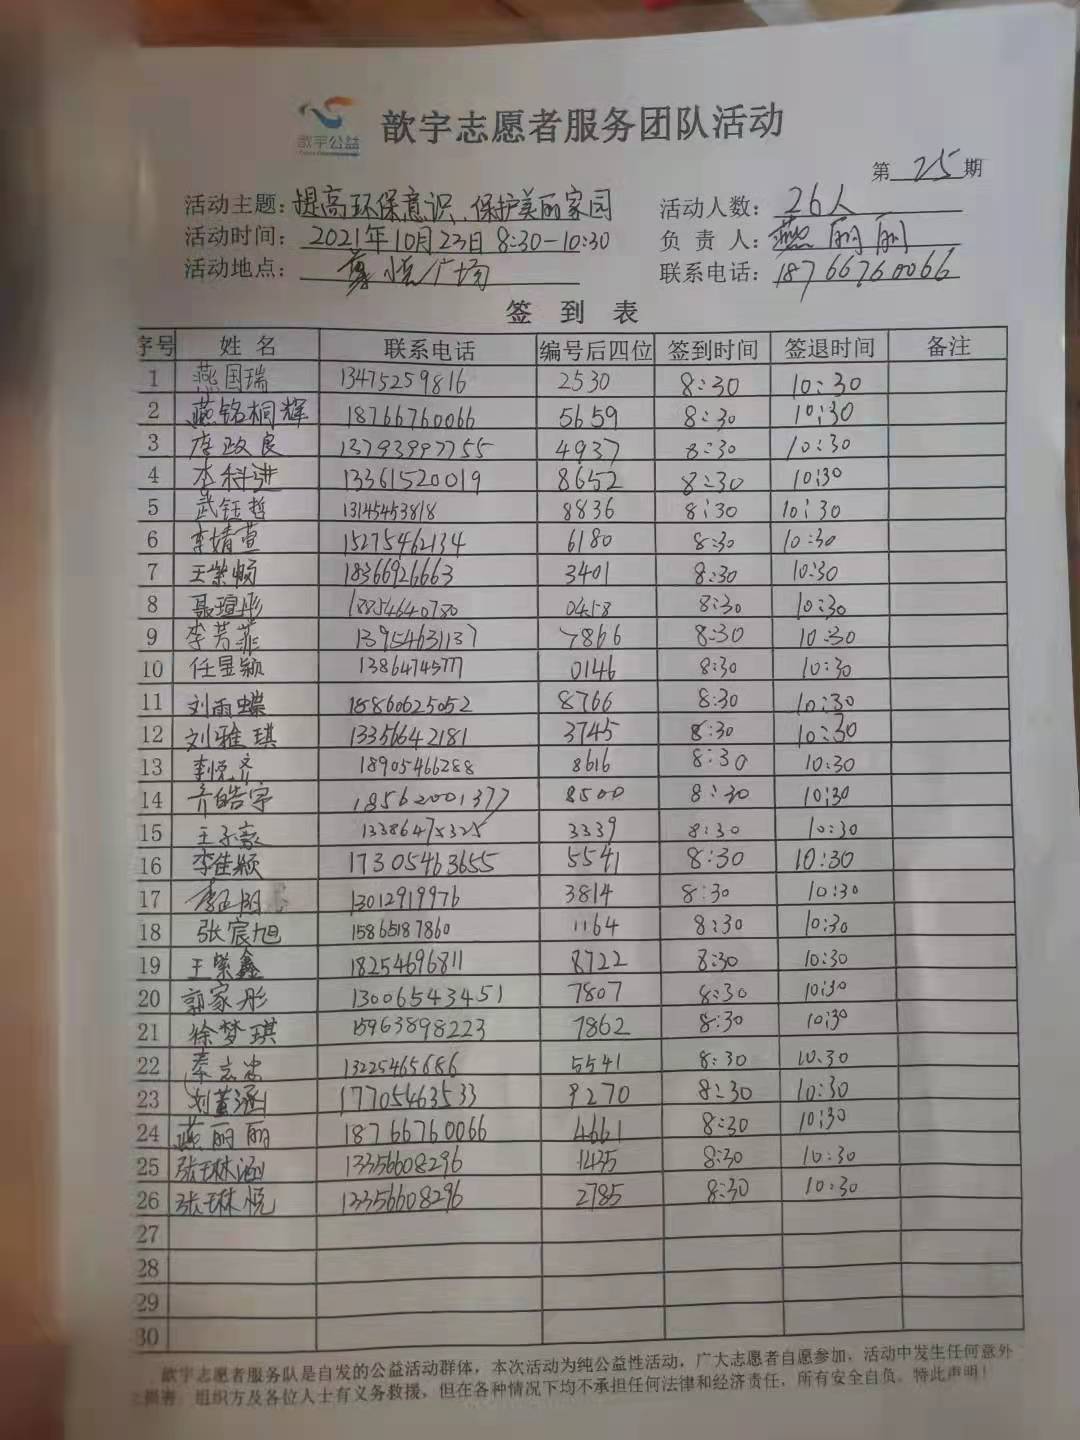 歆宇公益
歆宇志愿者服务团队活动
第 25 期
活动主题：提高环保意识、保护美丽家园 活动人数：26人
活动时间：2021年10月23日 8:30-10:30 负责人：燕丽丽
活动地点：悦广场 联系电话：18766760066
签到表
序号 姓名 联系电话 编号后四位 签到时间 签退时间 备注
1 燕国瑞 13475259816 2530 8:30 10:30
2 燕铭桐辉 18766760066 5659 8:30 10:30
3 唐政良 13793997755 4937 8:30 10:30
4 李科进 13361520019 8652 8:30 10:30
5 武钰哲 13145453818 8836 8:30 10:30
6 李婧萱 15275462134 6180 8:30 10:30
7 王紫畅 18366926663 3401 8:30 10:30
8 聂瑄彤 18854640780 0458 8:30 10:30
9 李芳菲 13954631137 7866 8:30 10:30
10 任昱颖 13864745777 0146 8:30 10:30
11 刘雨蝶 15860625052 8766 8:30 10:30
12 刘雅琪 13356642181 3745 8:30 10:30
13 李悦齐 18905466288 8616 8:30 10:30
14 齐皓宇 18562001377 8500 8:30 10:30
15 王子豪 13386475325 3339 8:30 10:30
16 李佳颖 17305463655 5541 8:30 10:30
17 13012919976 3814 8:30 10:30
18 张宸旭 15865187860 1164 8:30 10:30
19 王紫鑫 18254696811 8722 8:30 10:30
20 郭家彤 13006543451 7807 8:30 10:30
21 徐梦琪 15963898223 7862 8:30 10:30
22 秦志忠 13225465686 5541 8:30 10:30
23 刘董涵 17705463533 9270 8:30 10:30
24 燕丽丽 18766760066 4661 8:30 10:30
25 张琳涵 13356608296 1435 8:30 10:30
26 张琳悦 13356608296 2785 8:30 10:30
27
28
29
30
歆宇志愿者服务队是自发的公益活动群体，本次活动为纯公益性活动，广大志愿者自愿参加，活动中发生任何意外
损害，组织方及各位人士有义务救援，但在各种情况下均不承担任何法律和经济责任，所有安全自负。特此声明！